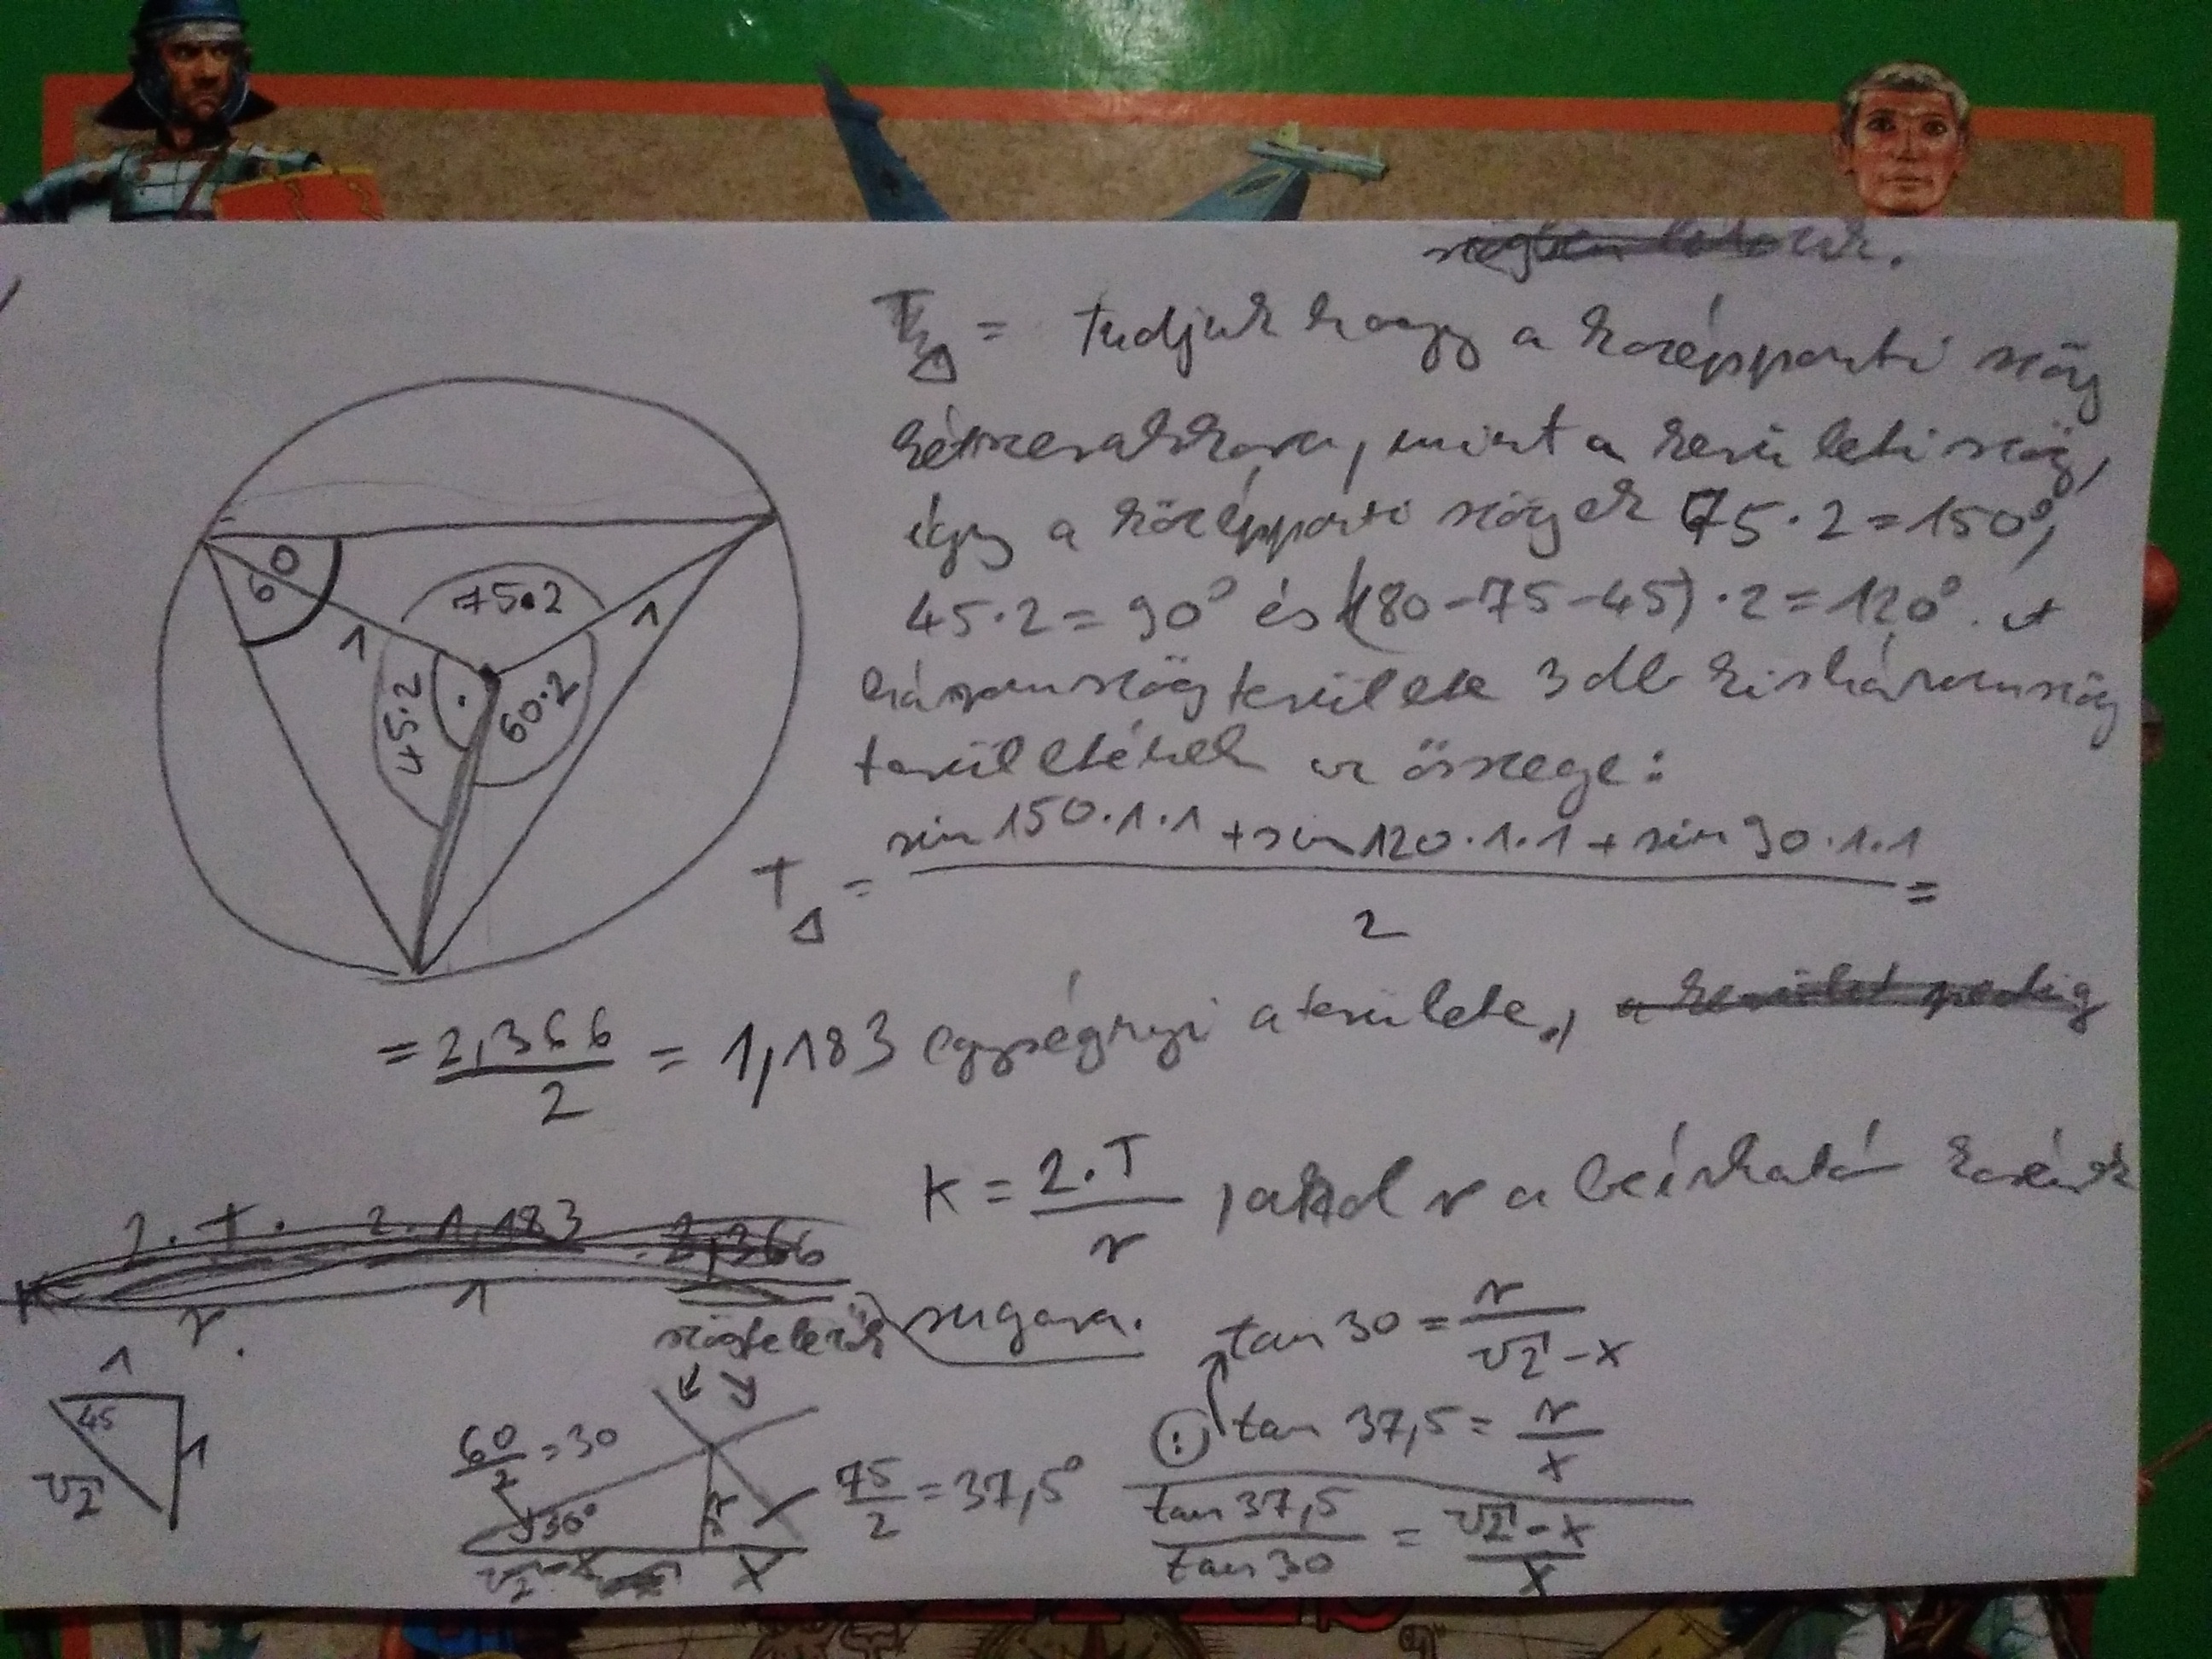 T△ = tudjuk hogy a középponti szög
kétszerakkora, mint a kerületi szög,
így a középponti szögek 75·2=150°,
45·2=90° és (180-75-45)·2=120°. A
háromszög területe 3 db kisháromszög
területének az összege:
T△ = (sin 150·1·1 + sin 120·1·1 + sin 90·1·1) / 2 =
= 2,366 / 2 = 1,183 egységnyi a területe.,
60
75·2
1
1
45·2
60·2
K = 2·T / r , ahol r a beírható körünk
sugara.
2·T· 2·1,183 2,366
K r 1
szögfelezők
1
45
1
√2
60/2 = 30
30°
r
√2-x
x
75/2 = 37,5°
tan 30 = r / (√2-x)
: tan 37,5 = r / x
tan 37,5 / tan 30 = (√2-x) / x